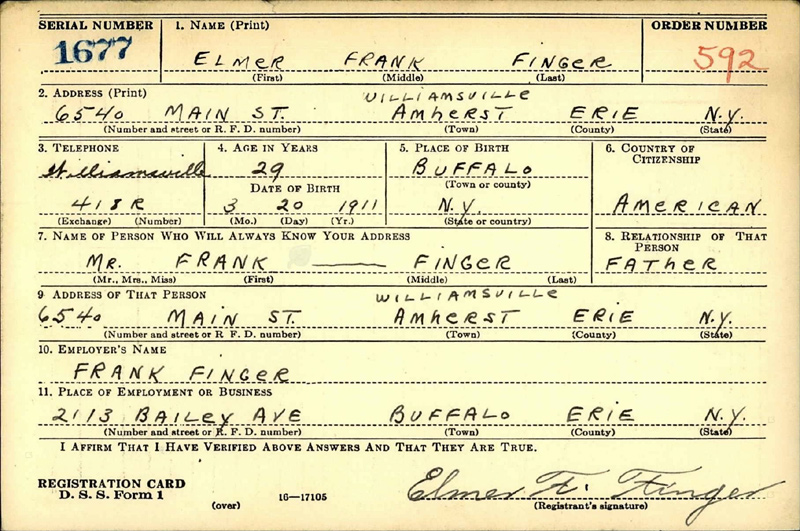 SERIAL NUMBER 1. NAME (Print) ORDER NUMBER
1677 ELMER FRANK FINGER 592
(First) (Middle) (Last)
2. ADDRESS (Print) WILLIAMSVILLE
6540 MAIN ST. AMHERST ERIE N.Y.
(Number and street or R. F. D. number) (Town) (County) (State)
3. TELEPHONE 4. AGE IN YEARS 5. PLACE OF BIRTH 6. COUNTRY OF CITIZENSHIP
Williamsville 29 BUFFALO
DATE OF BIRTH (Town or county)
418R 3 20 1911 N.Y. AMERICAN
(Exchange) (Number) (Mo.) (Day) (Yr.) (State or country)
7. NAME OF PERSON WHO WILL ALWAYS KNOW YOUR ADDRESS 8. RELATIONSHIP OF THAT PERSON
MR. FRANK —— FINGER FATHER
(Mr., Mrs., Miss) (First) (Middle) (Last)
9 ADDRESS OF THAT PERSON WILLIAMSVILLE
6540 MAIN ST. AMHERST ERIE N.Y.
(Number and street or R. F. D. number) (Town) (County) (State)
10. EMPLOYER'S NAME
FRANK FINGER
11. PLACE OF EMPLOYMENT OR BUSINESS
2113 BAILEY AVE BUFFALO ERIE N.Y.
(Number and street or R. F. D. number) (Town) (County) (State)
I AFFIRM THAT I HAVE VERIFIED ABOVE ANSWERS AND THAT THEY ARE TRUE.
REGISTRATION CARD
D. S. S. Form 1 16—17105 Elmer F. Finger
(over) (Registrant's signature)